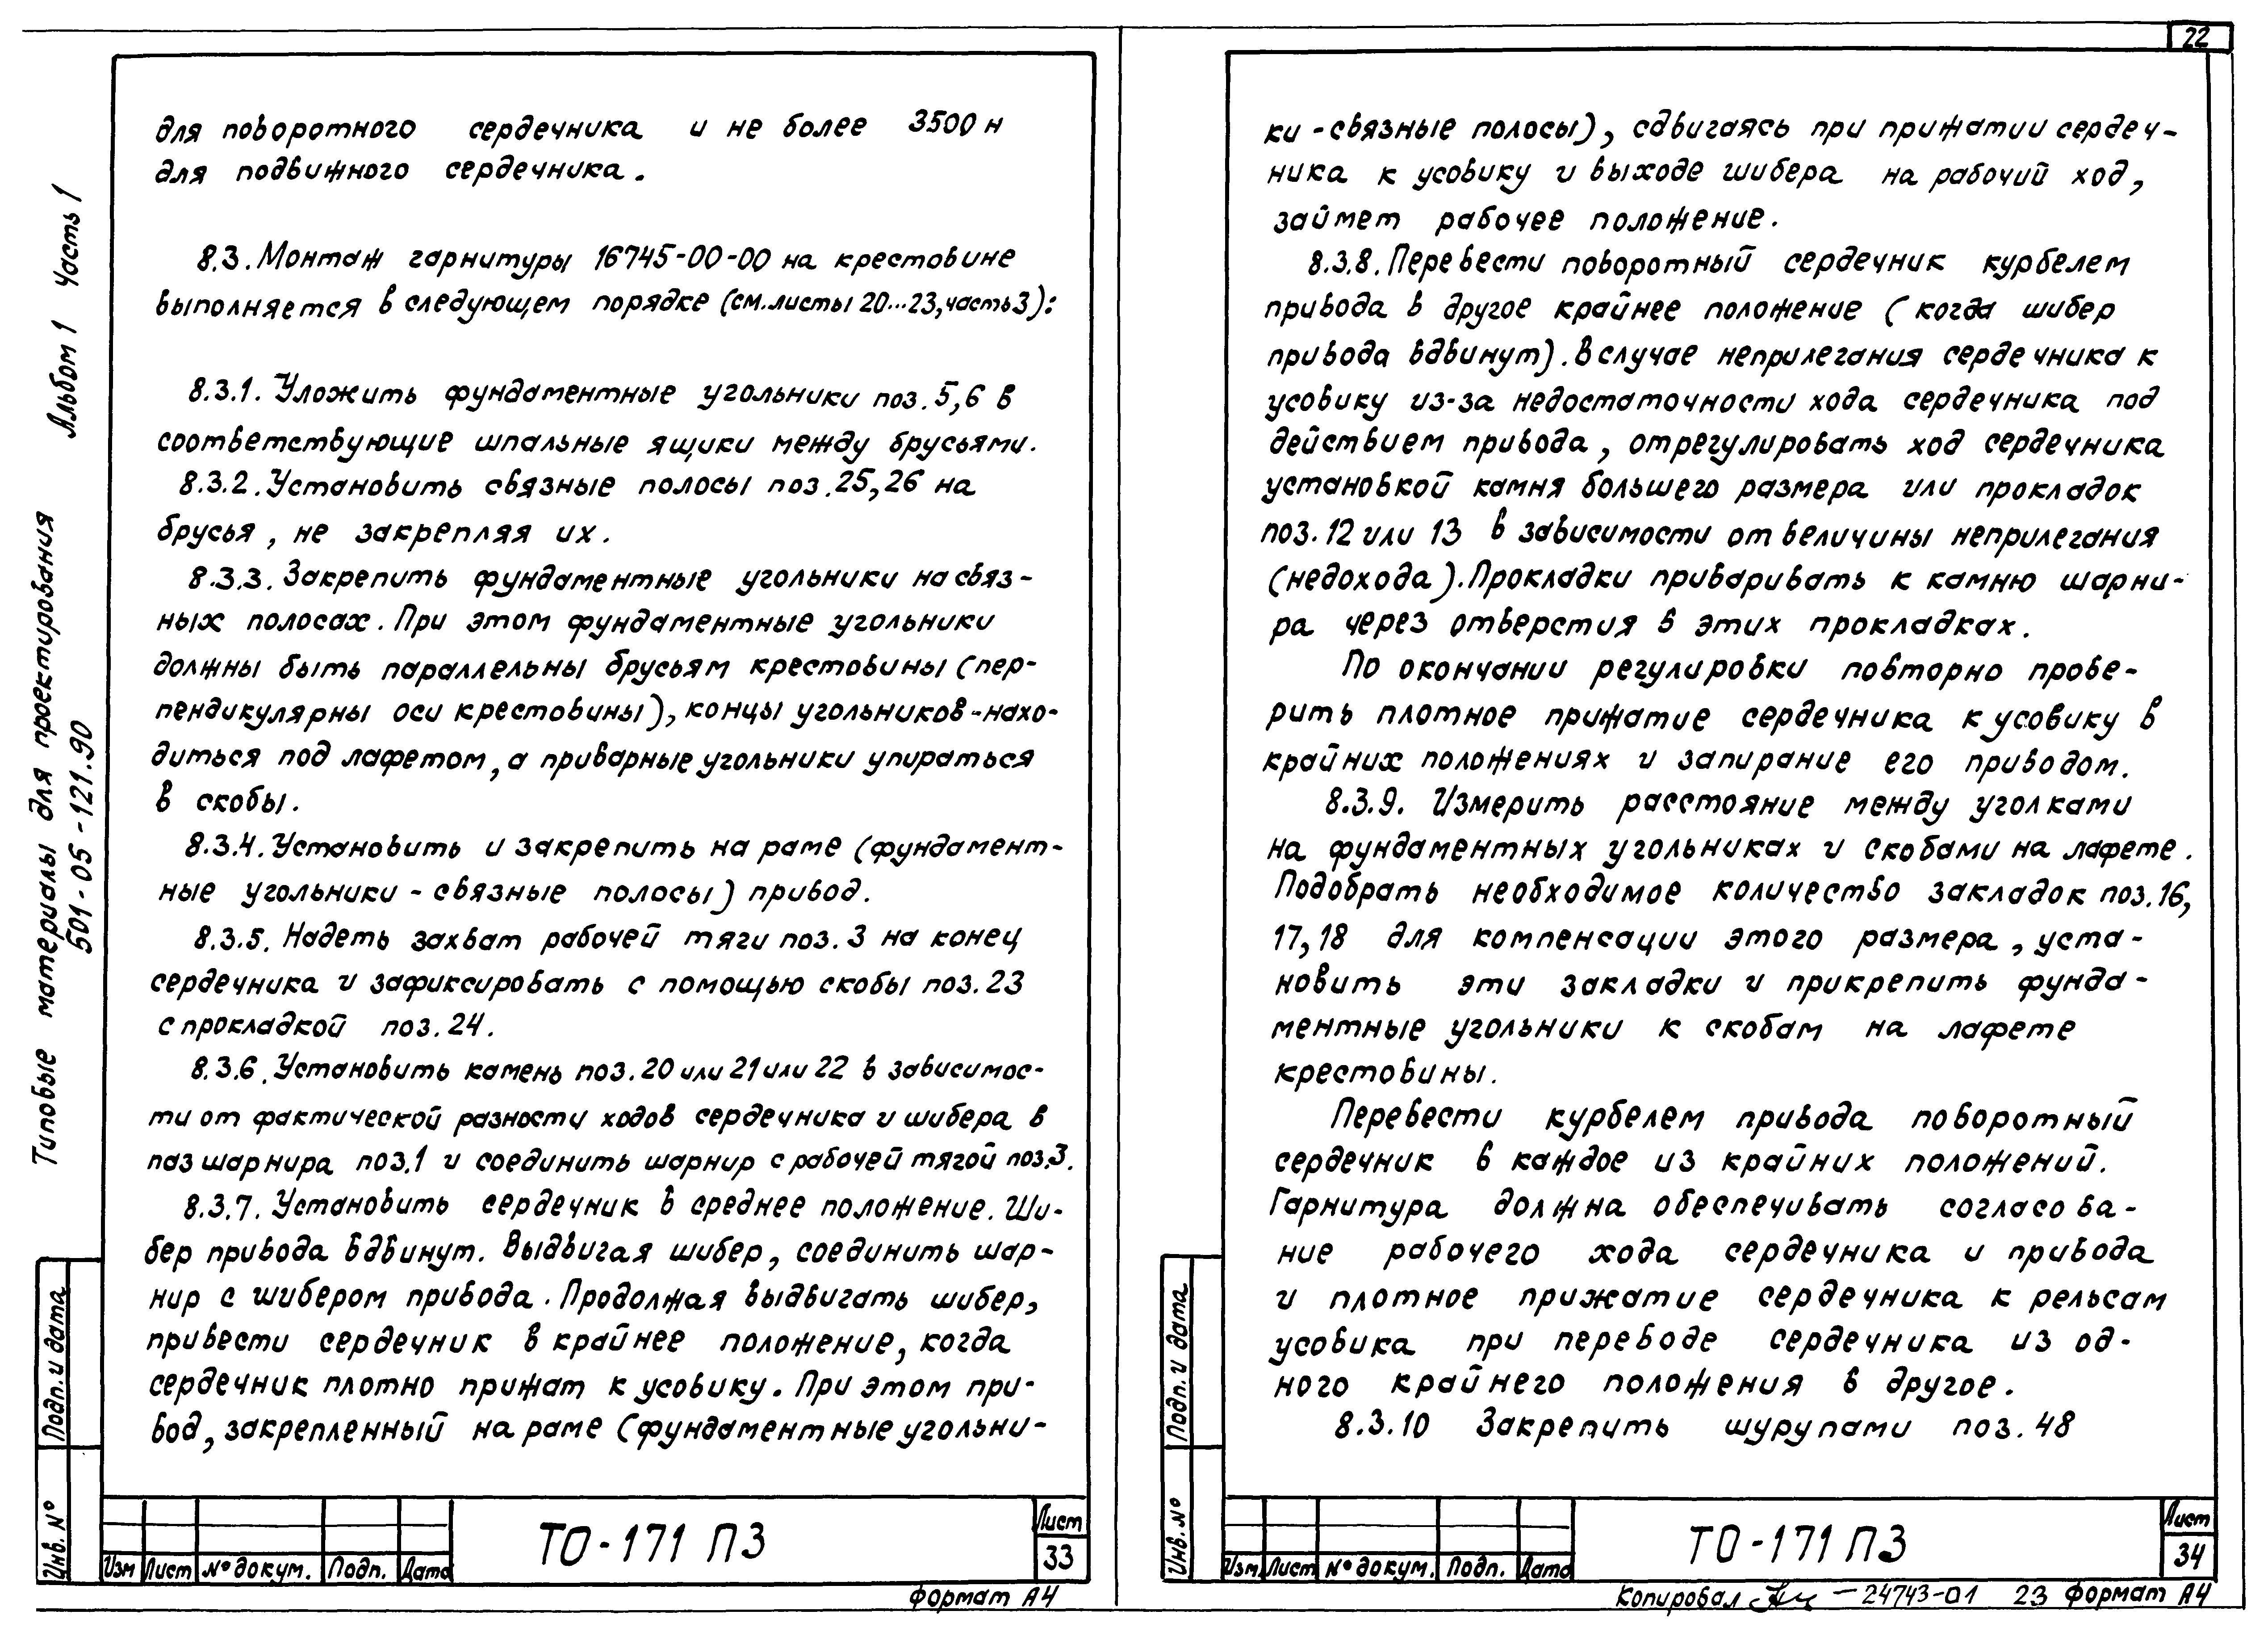 22
для поворотного сердечника и не более 3500 н
для подвижного сердечника.
8.3. Монтаж гарнитуры 16745-00-00 на крестовине
выполняется в следующем порядке (см. листы 20...23, часть 3):
8.3.1. Уложить фундаментные угольники поз. 5,6 в
соответствующие шпальные ящики между брусьями.
8.3.2. Установить связные полосы поз. 25, 26 на
брусья, не закрепляя их.
8.3.3. Закрепить фундаментные угольники на связ-
ных полосах. При этом фундаментные угольники
должны быть параллельны брусьям крестовины (пер-
пендикулярны оси крестовины), концы угольников-нахо-
диться под лафетом, а приварные угольники упираться
в скобы.
8.3.4. Установить и закрепить на раме (фундамент-
ные угольники - связные полосы) привод.
8.3.5. Надеть захват рабочей тяги поз. 3 на конец
сердечника и зафиксировать с помощью скобы поз. 23
с прокладкой поз. 24.
8.3.6. Установить камень поз. 20 или 21 или 22 в зависимос-
ти от фактической разности ходов сердечника и шибера в
паз шарнира поз. 1 и соединить шарнир с рабочей тягой поз. 3.
8.3.7. Установить сердечник в среднее положение. Ши-
бер привода вдвинут. Выдвигая шибер, соединить шар-
нир с шибером привода. Продолжая выдвигать шибер,
привести сердечник в крайнее положение, когда
сердечник плотно прижат к усовику. При этом при-
вод, закрепленный на раме (фундаментные угольни-
Типовые материалы для проектирования Альбом 1 Часть 1
501-05-121.90
Подп. и дата
Инв. №
Изм Лист № докум. Подп. Дата
ТО-171 ПЗ
Лист
33
Формат А4
ки - связные полосы), сдвигаясь при прижатии сердеч-
ника к усовику и выходе шибера на рабочий ход,
займет рабочее положение.
8.3.8. Перевести поворотный сердечник курбелем
привода в другое крайнее положение (когда шибер
привода вдвинут). В случае неприлегания сердечника к
усовику из-за недостаточности хода сердечника под
действием привода, отрегулировать ход сердечника
установкой камня большего размера или прокладок
поз. 12 или 13 в зависимости от величины неприлегания
(недохода). Прокладки приваривать к камню шарни-
ра через отверстия в этих прокладках.
По окончании регулировки повторно прове-
рить плотное прижатие сердечника к усовику в
крайних положениях и запирание его приводом.
8.3.9. Измерить расстояние между уголками
на фундаментных угольниках и скобами на лафете.
Подобрать необходимое количество закладок поз. 16,
17, 18 для компенсации этого размера, уста-
новить эти закладки и прикрепить фунда-
ментные угольники к скобам на лафете
крестовины.
Перевести курбелем привода поворотный
сердечник в каждое из крайних положений.
Гарнитура должна обеспечивать согласова-
ние рабочего хода сердечника и привода
и плотное прижатие сердечника к рельсам
усовика при переводе сердечника из од-
ного крайнего положения в другое.
8.3.10 Закрепить шурупами поз. 48
Подп. и дата
Инв. №
Изм. Лист № докум. Подп. Дата
ТО-171 ПЗ
Лист
34
Копировал 24743-01 23 Формат А4